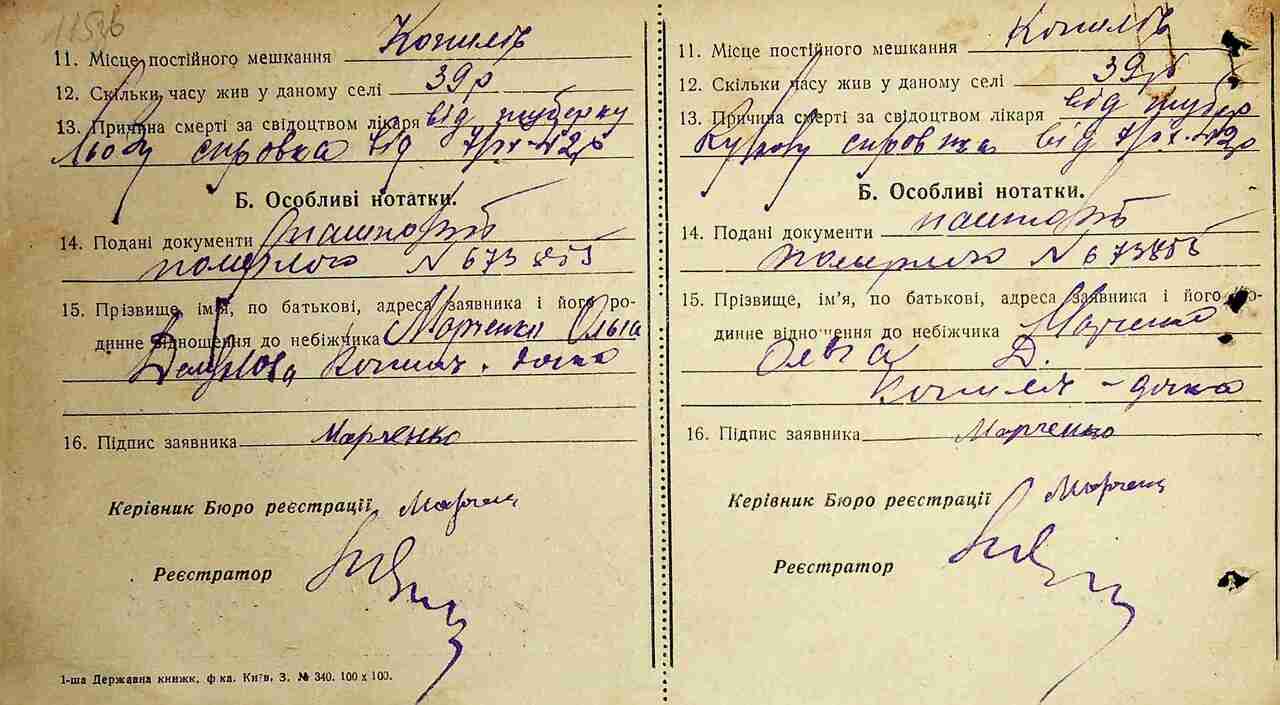 11536
11. Місце постійного мешкання Копилів
12. Скільки часу жив у даному селі 39 р
13. Причина смерті за свідоцтвом лікаря від туберку
льозу справка від 7/IX-42р
Б. Особливі нотатки.
14. Подані документи Пашпорт
померлого N 673855
15. Прізвище, ім'я, по батькові, адреса заявника і його ро-
динне відношення до небіжчика Марченко Ольга
Копилів. дочка
16. Підпис заявника Марченко
Керівник Бюро реєстрації Марченко
Реєстратор
1-ша Державна книжк. ф-ка. Київ, З. № 340. 100 x 100.
11. Місце постійного мешкання Копилів
12. Скільки часу жив у даному селі 39р
13. Причина смерті за свідоцтвом лікаря від тубер
кульозу справка від 7/IX-42р
Б. Особливі нотатки.
14. Подані документи пашпорт
померлого N 673855
15. Прізвище, ім'я, по батькові, адреса заявника і його ро-
динне відношення до небіжчика Марченко
Ольга Д.
Копилів - дочка
16. Підпис заявника Марченко
Керівник Бюро реєстрації Марченко
Реєстратор